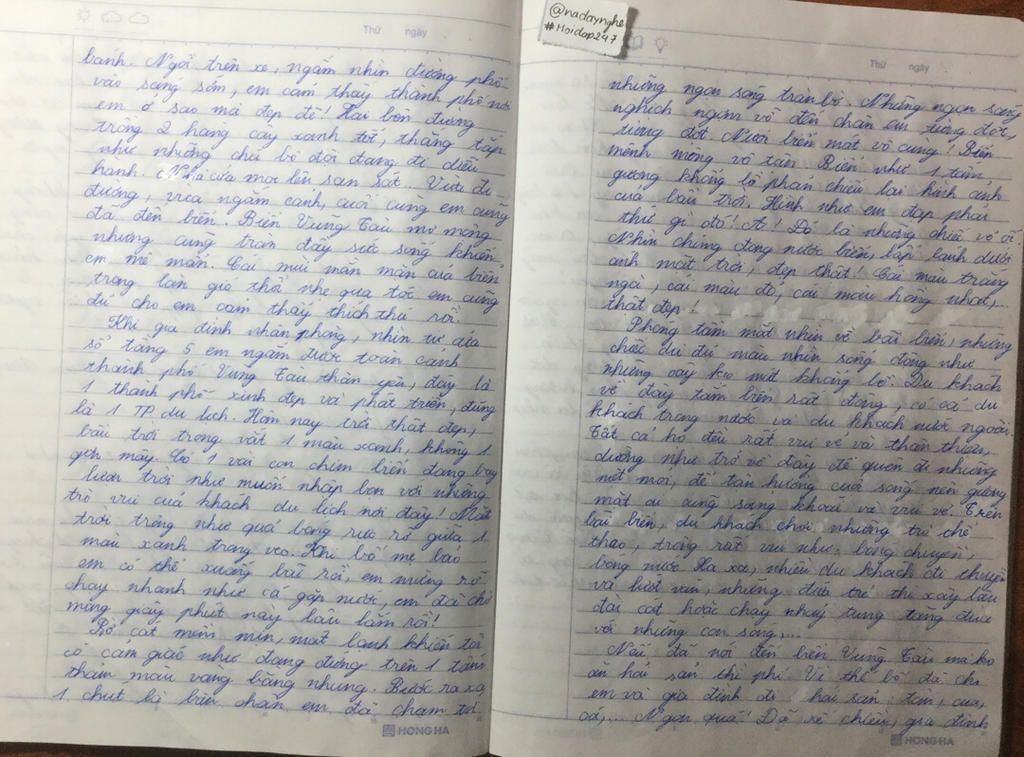 Thứ ngày
bánh. Ngồi trên xe, ngắm nhìn đường phố
vào sáng sớm, em cảm thấy thành phố nơi
em ở sao mà đẹp đẽ! Hai bên đường
trồng 2 hàng cây xanh tốt, thẳng tắp
như những chú bộ đội đang đi diễu
hành. Nhà cửa mọc lên san sát... Vừa đi
đường, vừa ngắm cảnh, cuối cùng em cũng
đã đến biển. Biển Vũng Tàu mơ mộng
nhưng cũng tràn đầy sức sống khiến
em mê mẩn. Cái mùi mằn mặn của biển
trong làn gió thổi nhẹ qua tóc em cũng
đủ cho em cảm thấy thích thú rồi.
Khi gia đình nhận phòng, nhìn từ cửa
sổ tầng 5 em ngắm được toàn cảnh
thành phố Vũng Tàu thân yêu, đây là
1 thành phố xinh đẹp và phát triển, đúng
là 1 TP du lịch. Hôm nay trời thật đẹp,
bầu trời trong vắt 1 màu xanh, không 1
gợn mây. Có 1 vài con chim biển đang bay
lượn trời như muốn nhập bọn với những
trò vui của khách du lịch nơi đây! Mặt
trời trông như quả bóng rực rỡ giữa 1
màu xanh trong veo. Khi bố mẹ bảo
em có thể xuống bãi rồi, em mừng rỡ
chạy nhanh như cá gặp nước, em đã chờ
mong giây phút này lâu lắm rồi!
Bờ cát mềm mịn, mát lạnh khiến tôi
có cảm giác như đang đứng trên 1 tấm
thảm màu vàng bằng nhung. Bước ra xa
1 chút là biển chân em đã chạm tới
HONG HA
@nadaynghe
#Hoidap247
Thứ ngày
những ngọn sóng tràn bờ. Những ngọn sóng
nghịch ngợm vỗ đến chân em từng đợt,
từng đợt. Nước biển mát vô cùng! Biển
mênh mông vô tận. Biển như 1 tấm
gương khổng lồ phản chiếu lại hình ảnh
của bầu trời. Hình như em đạp phải
thứ gì đó! A! Đó là những chiếc vỏ ốc.
Nhìn chúng đọng nước biển, lấp lánh dưới
ánh mặt trời, đẹp thật! Cái màu trắng
ngà, cái màu đỏ, cái màu hồng nhạt,...
thật đẹp!
Phóng tầm mắt nhìn về bãi biển, những
chiếc dù đủ màu nhìn sống động như
những cây kẹo mút khổng lồ. Du khách
về đây tắm biển rất đông, có cả du
khách trong nước và du khách nước ngoài.
Tất cả họ đều rất vui vẻ và thân thiện,
dường như trở về đây để quên đi những
mệt mỏi, để tận hưởng cuộc sống nên gương
mặt ai cũng sảng khoái và vui vẻ. Trên
bãi biển, du khách chơi những trò thể
thao, trông rất vui như: bóng chuyền,
bóng nước. Xa xa, nhiều du khách đi thuyền
và lướt ván, những đứa trẻ thì xây lâu
đài cát hoặc chạy nhảy tung tăng đùa
với những con sóng,...
Nếu đã nói đến biển Vũng Tàu mà ko
ăn hải sản thì phí. Vì thế bố đã cho
em và gia đình đi hải sản: tôm, cua,
cá,... Ngon quá! Đã về chiều, gia đình
HONG HA